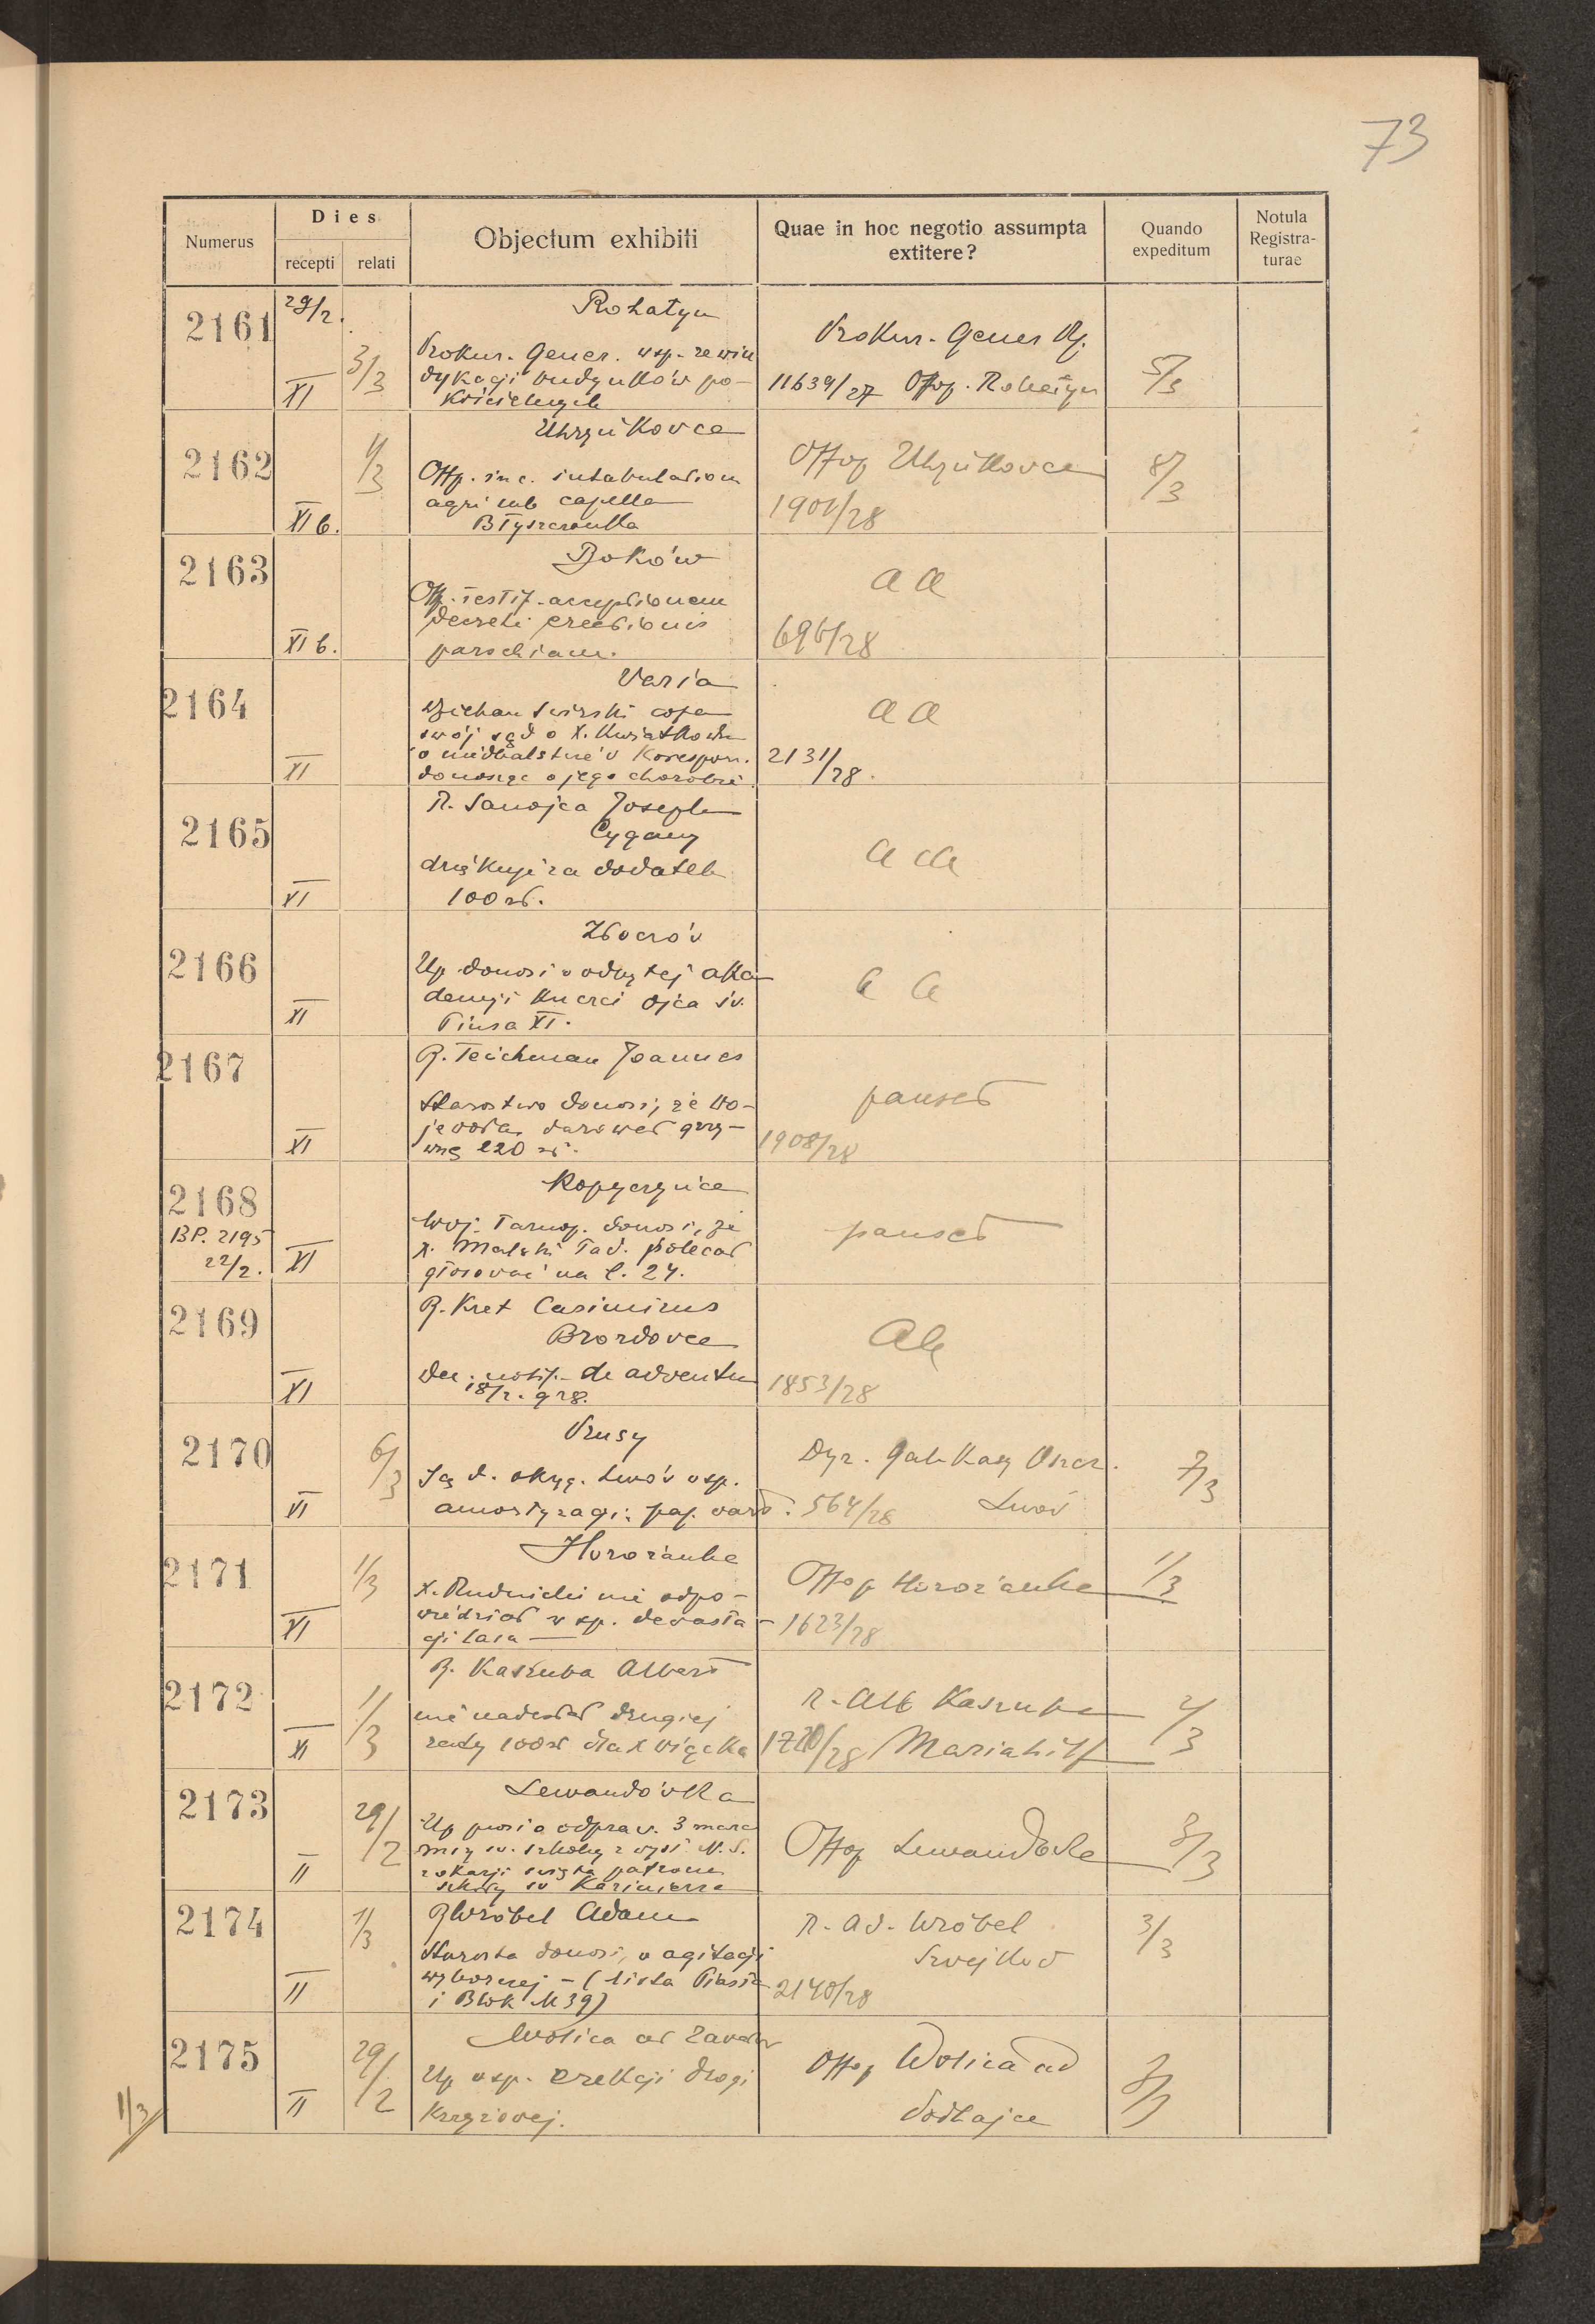 73
Numerus
Dies
recepti relati
Objectum exhibiti
Quae in hoc negotio assumpta
extitere?
Quando
expeditum
Notula
Registra-
turae
2161
29/2.
XI
3/3
Rohatyn
Prokur. Gener. wsp. rewin
dykacji budynków po-
kościelnych
Prokur. Gener
11639/27 Offop. Rohatyn
5/3
2162
XI b.
1/3
Uhryńkovce
Offp. inc. intabulation
agri sub capella
Błyszczanka
Offop Uhryńkovce
1901/28
8/3
2163
XI b.
Boków
Offp. testif. acceptionem
decreti erectionis
parochiam.
a a
696/28
2164
XI
Varia
Świrski cofa
swój sąd o X.
o niedbalstwie v korespon.
donosząc o jego chorobie.
a a
2131/28.
2165
XI
R. Sanojca Joseph
Cygany
dziękuje za dodatek
100 zł.
a a
2166
XI
Zboróv
Up donosi o odbytej aka
demji ku czci Ojca św.
Piusa XI.
a a
2167
XI
R. Teichman Joannes
Starostwo donosi, że Wo-
jewoda darował grzy-
wnę 220 zł.
pauset
1908/28
2168
BP. 2195
22/2.
XI
Kopyczyńce
Woj. Tarnop. donosi, że
X. Malski Tad. polecał
głosovać na l. 24.
pauset
2169
XI
R. Kret Casimirus
Brozdovce
Dec. notif. de adventu
18/2. 928.
1853/28
2170
VI
6/3
Prusy
Sąd. okręg. Lwóv vsp.
amortyzacji pap. vart.
Dyr. Gal. Kasy Oszcz.
564/28 Lwóv
7/3
2171
XI
1/3
Horożanka
X. Rudnicki nie odpo-
wiedział v sp. devasta-
cji lasa
Offop Horożanka
1623/28
1/3
2172
XI
1/3
R. Kaszuba Albert
nie nadesłał drugiej
raty 100 zł dla X Wiącka
R. Alb Kaszuba
1720/28 Mariahilf
2/3
2173
II
29/2
Lewandóvka
Up prosi o odprav. 3 marca
mszy sv. szkolny z wyst. N. S.
z okazji święta patrona
szkoły sv Kazimierza
Offop Lewandówka
3/3
2174
II
1/3
R Wróbel Adam
Starosta donosi, o agitacji
wyborczej - (lista Piasta
i Blok M 39)
R. Ad. Wróbel
Szvejkov
2140/28
3/3
2175
II
29/2
Wolica ad
Up vsp. erekcji drogi
krzyżovej.
Offop Wolica ad
Podhajce
3/3
1/3